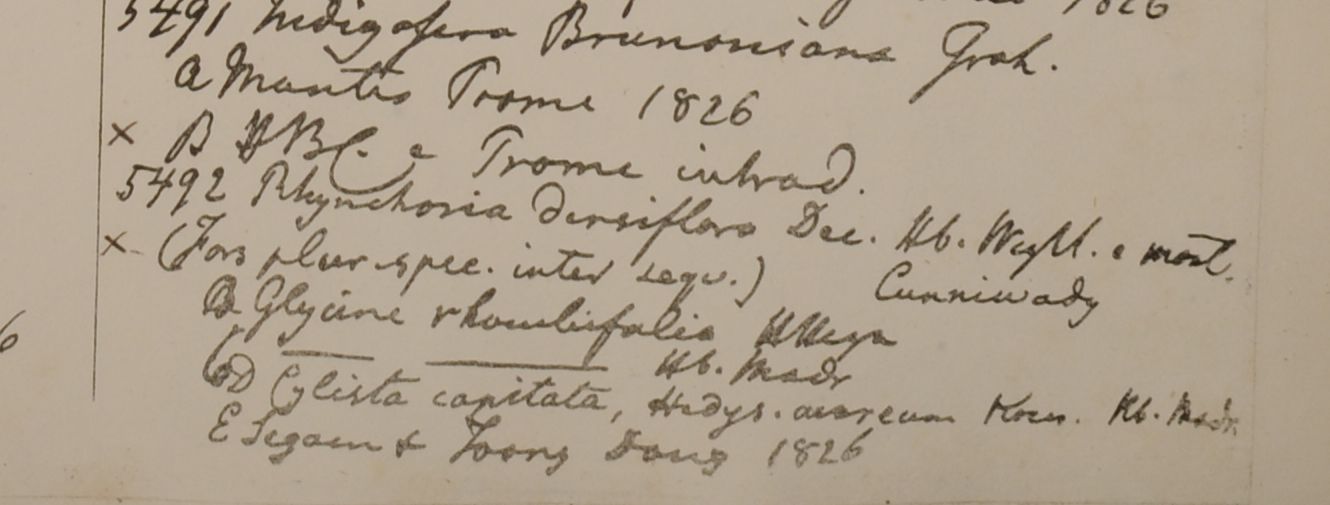 1826
5491 Indigofera Brunoniana Grah.
a Montis Prome 1826
× B HBC. e Prome introd.
5492 Rhynchosia densiflora Dec. Hb. Wight. e mont.
× (Fors plur. spec. inter sequ.) Cunniwady
B Glycine rhombifolia HHeyn
C ——— ——— Hb. Madr
D Cylista capitata, Hedys. aureum Koen. Hb. Madr
E Segaen & Toong Dong 1826
6